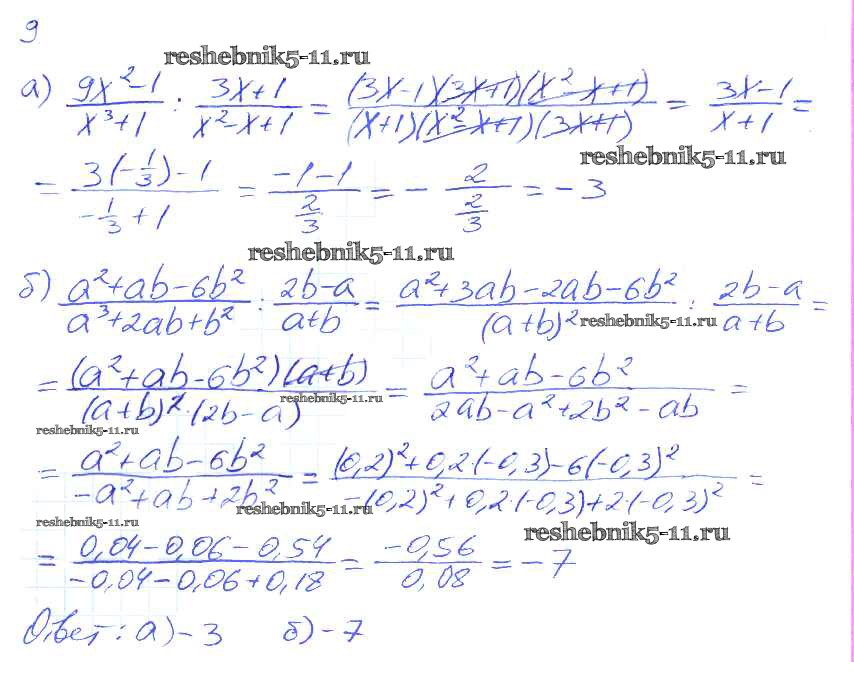 9
reshebnik5-11.ru
а) (9x²-1)/(x³+1) : (3x+1)/(x²-x+1) = ((3x-1)(3x+1)(x²-x+1))/((x+1)(x²-x+1)(3x+1)) = (3x-1)/(x+1) =
reshebnik5-11.ru
= (3(-1/3)-1)/(-1/3+1) = (-1-1)/(2/3) = - 2/(2/3) = -3
reshebnik5-11.ru
б) (a²+ab-6b²)/(a³+2ab+b²) : (2b-a)/(a+b) = (a²+3ab-2ab-6b²)/(a+b)² : (2b-a)/(a+b) =
reshebnik5-11.ru
= ((a²+ab-6b²)(a+b))/((a+b)²·(2b-a)) = (a²+ab-6b²)/(2ab-a²+2b²-ab) =
reshebnik5-11.ru
reshebnik5-11.ru
= (a²+ab-6b²)/(-a²+ab+2b²) = ((0,2)²+0,2·(-0,3)-6(-0,3)²)/(-(0,2)²+0,2·(-0,3)+2·(-0,3)²) =
reshebnik5-11.ru
reshebnik5-11.ru
reshebnik5-11.ru
= (0,04-0,06-0,54)/(-0,04-0,06+0,18) = (-0,56)/(0,08) = -7
Ответ: а) -3 б) -7